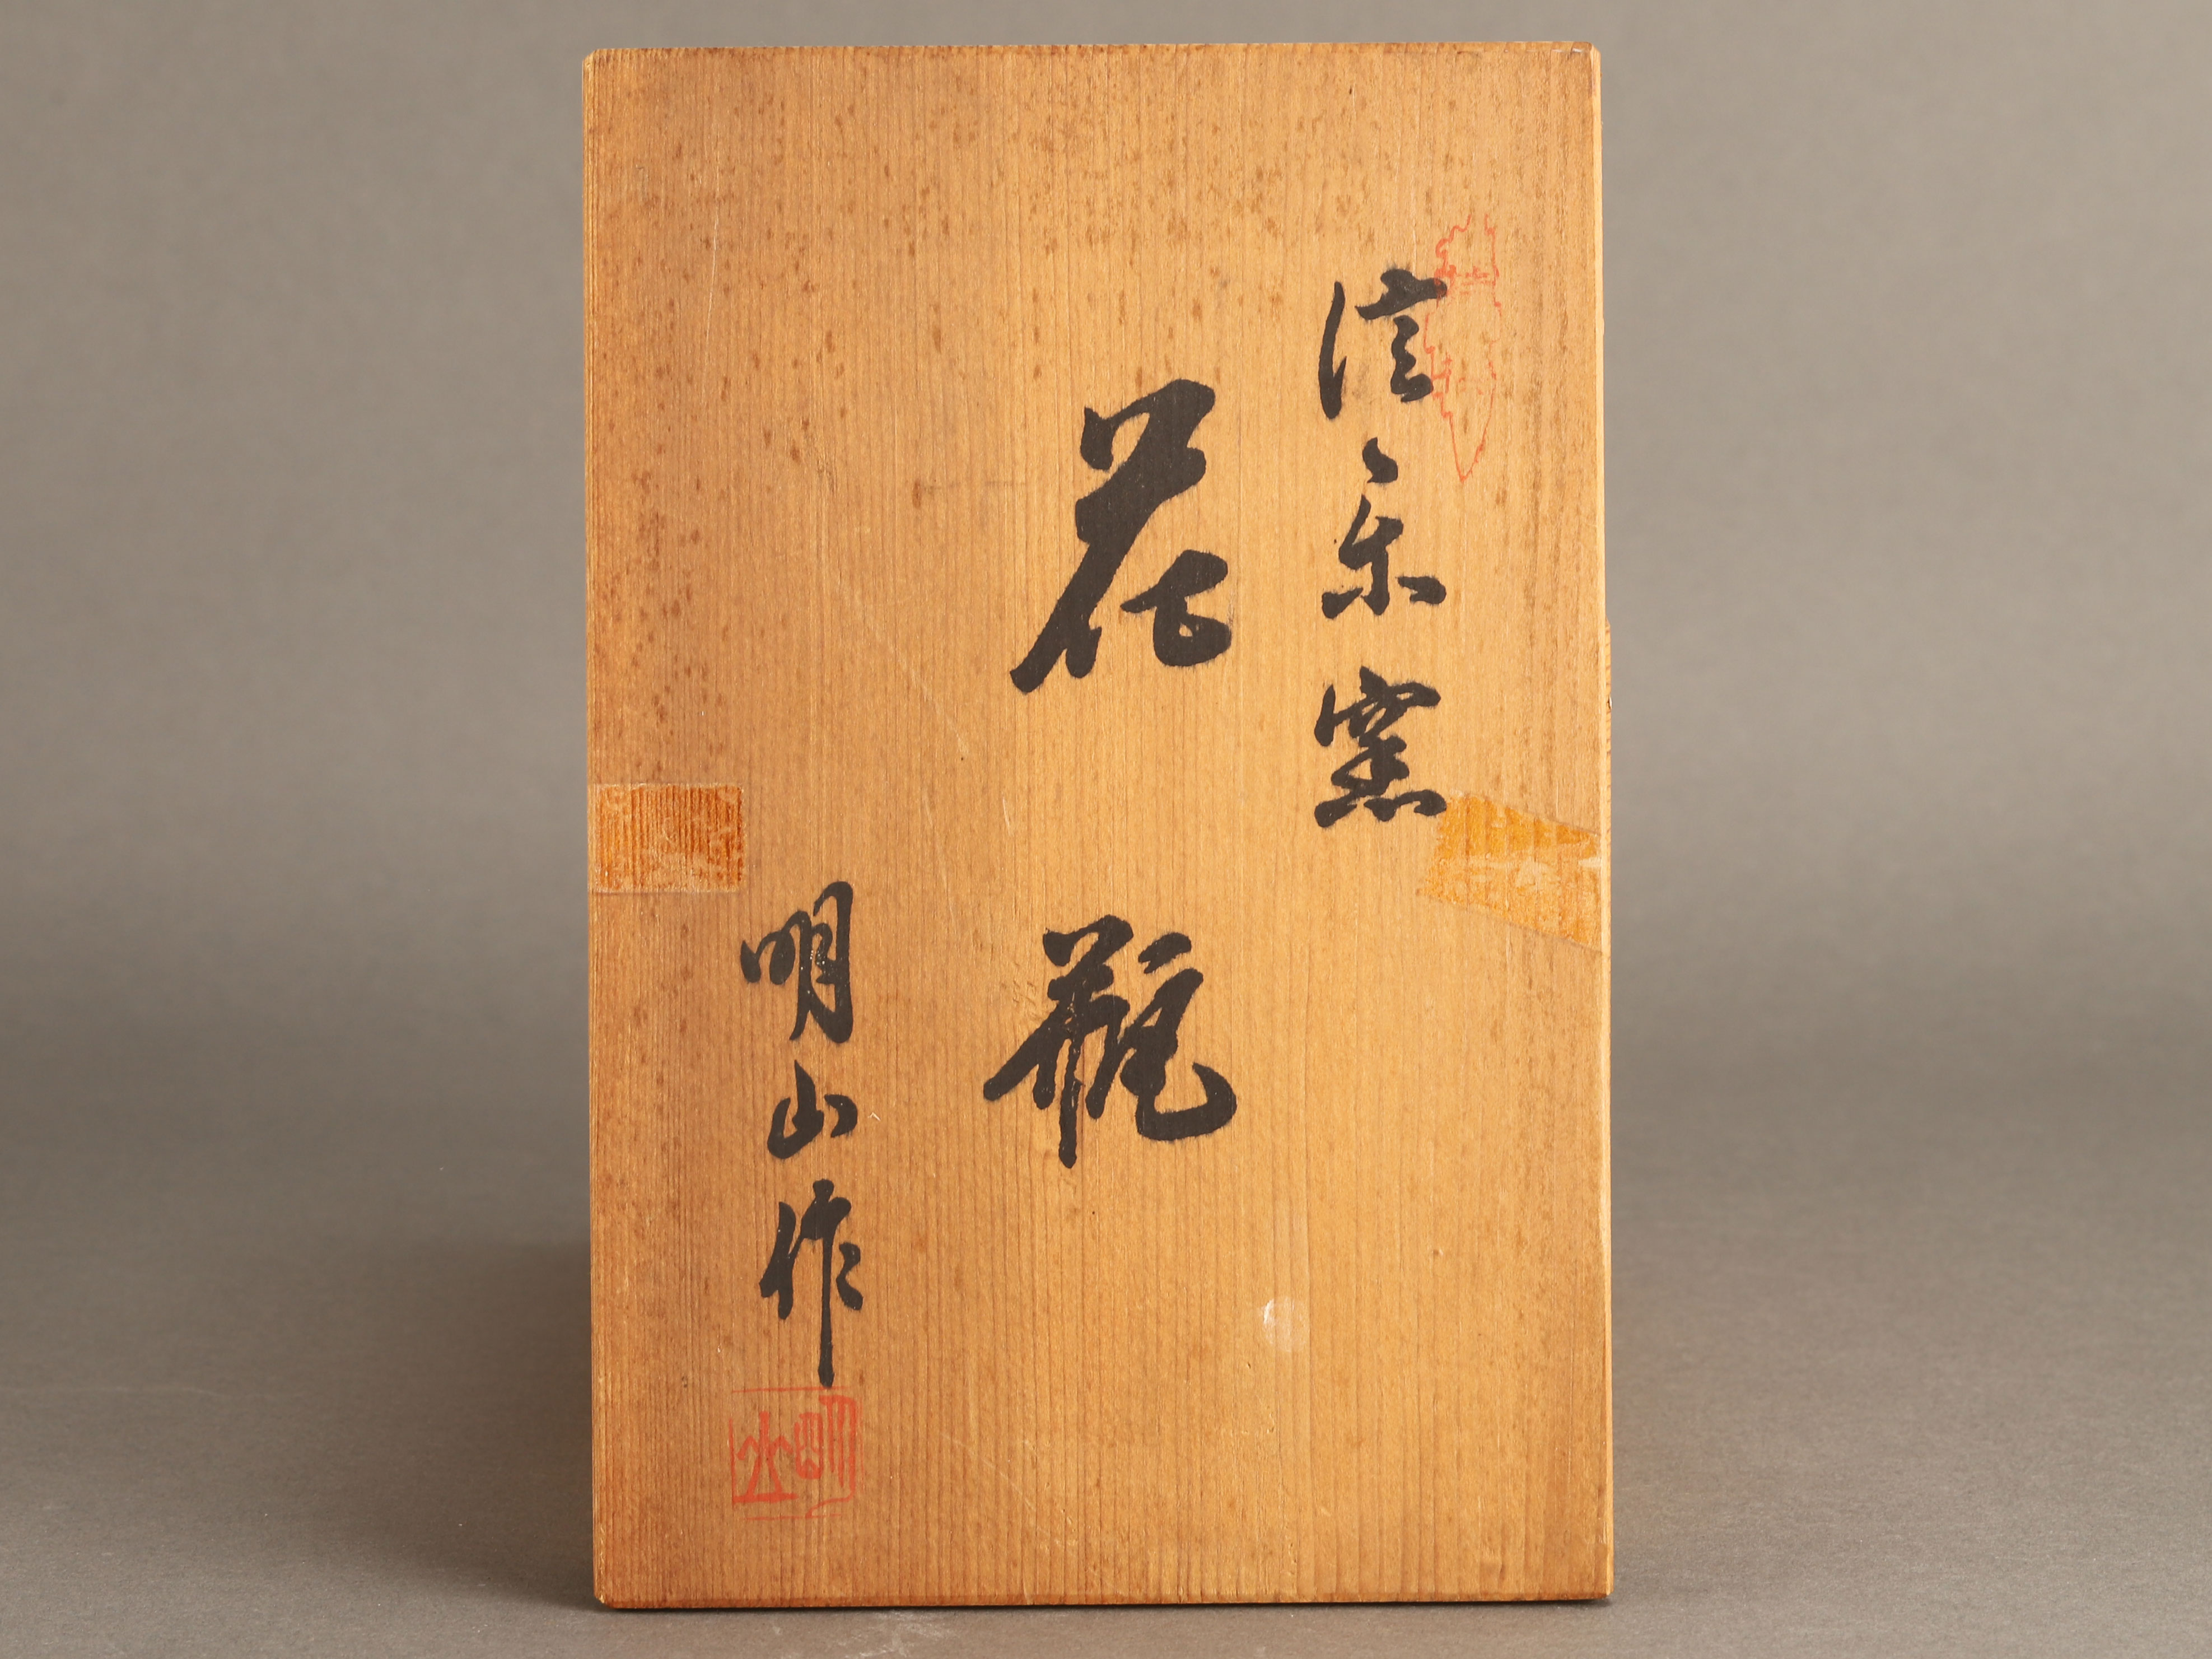 信楽窯
花瓶
明山作
明山